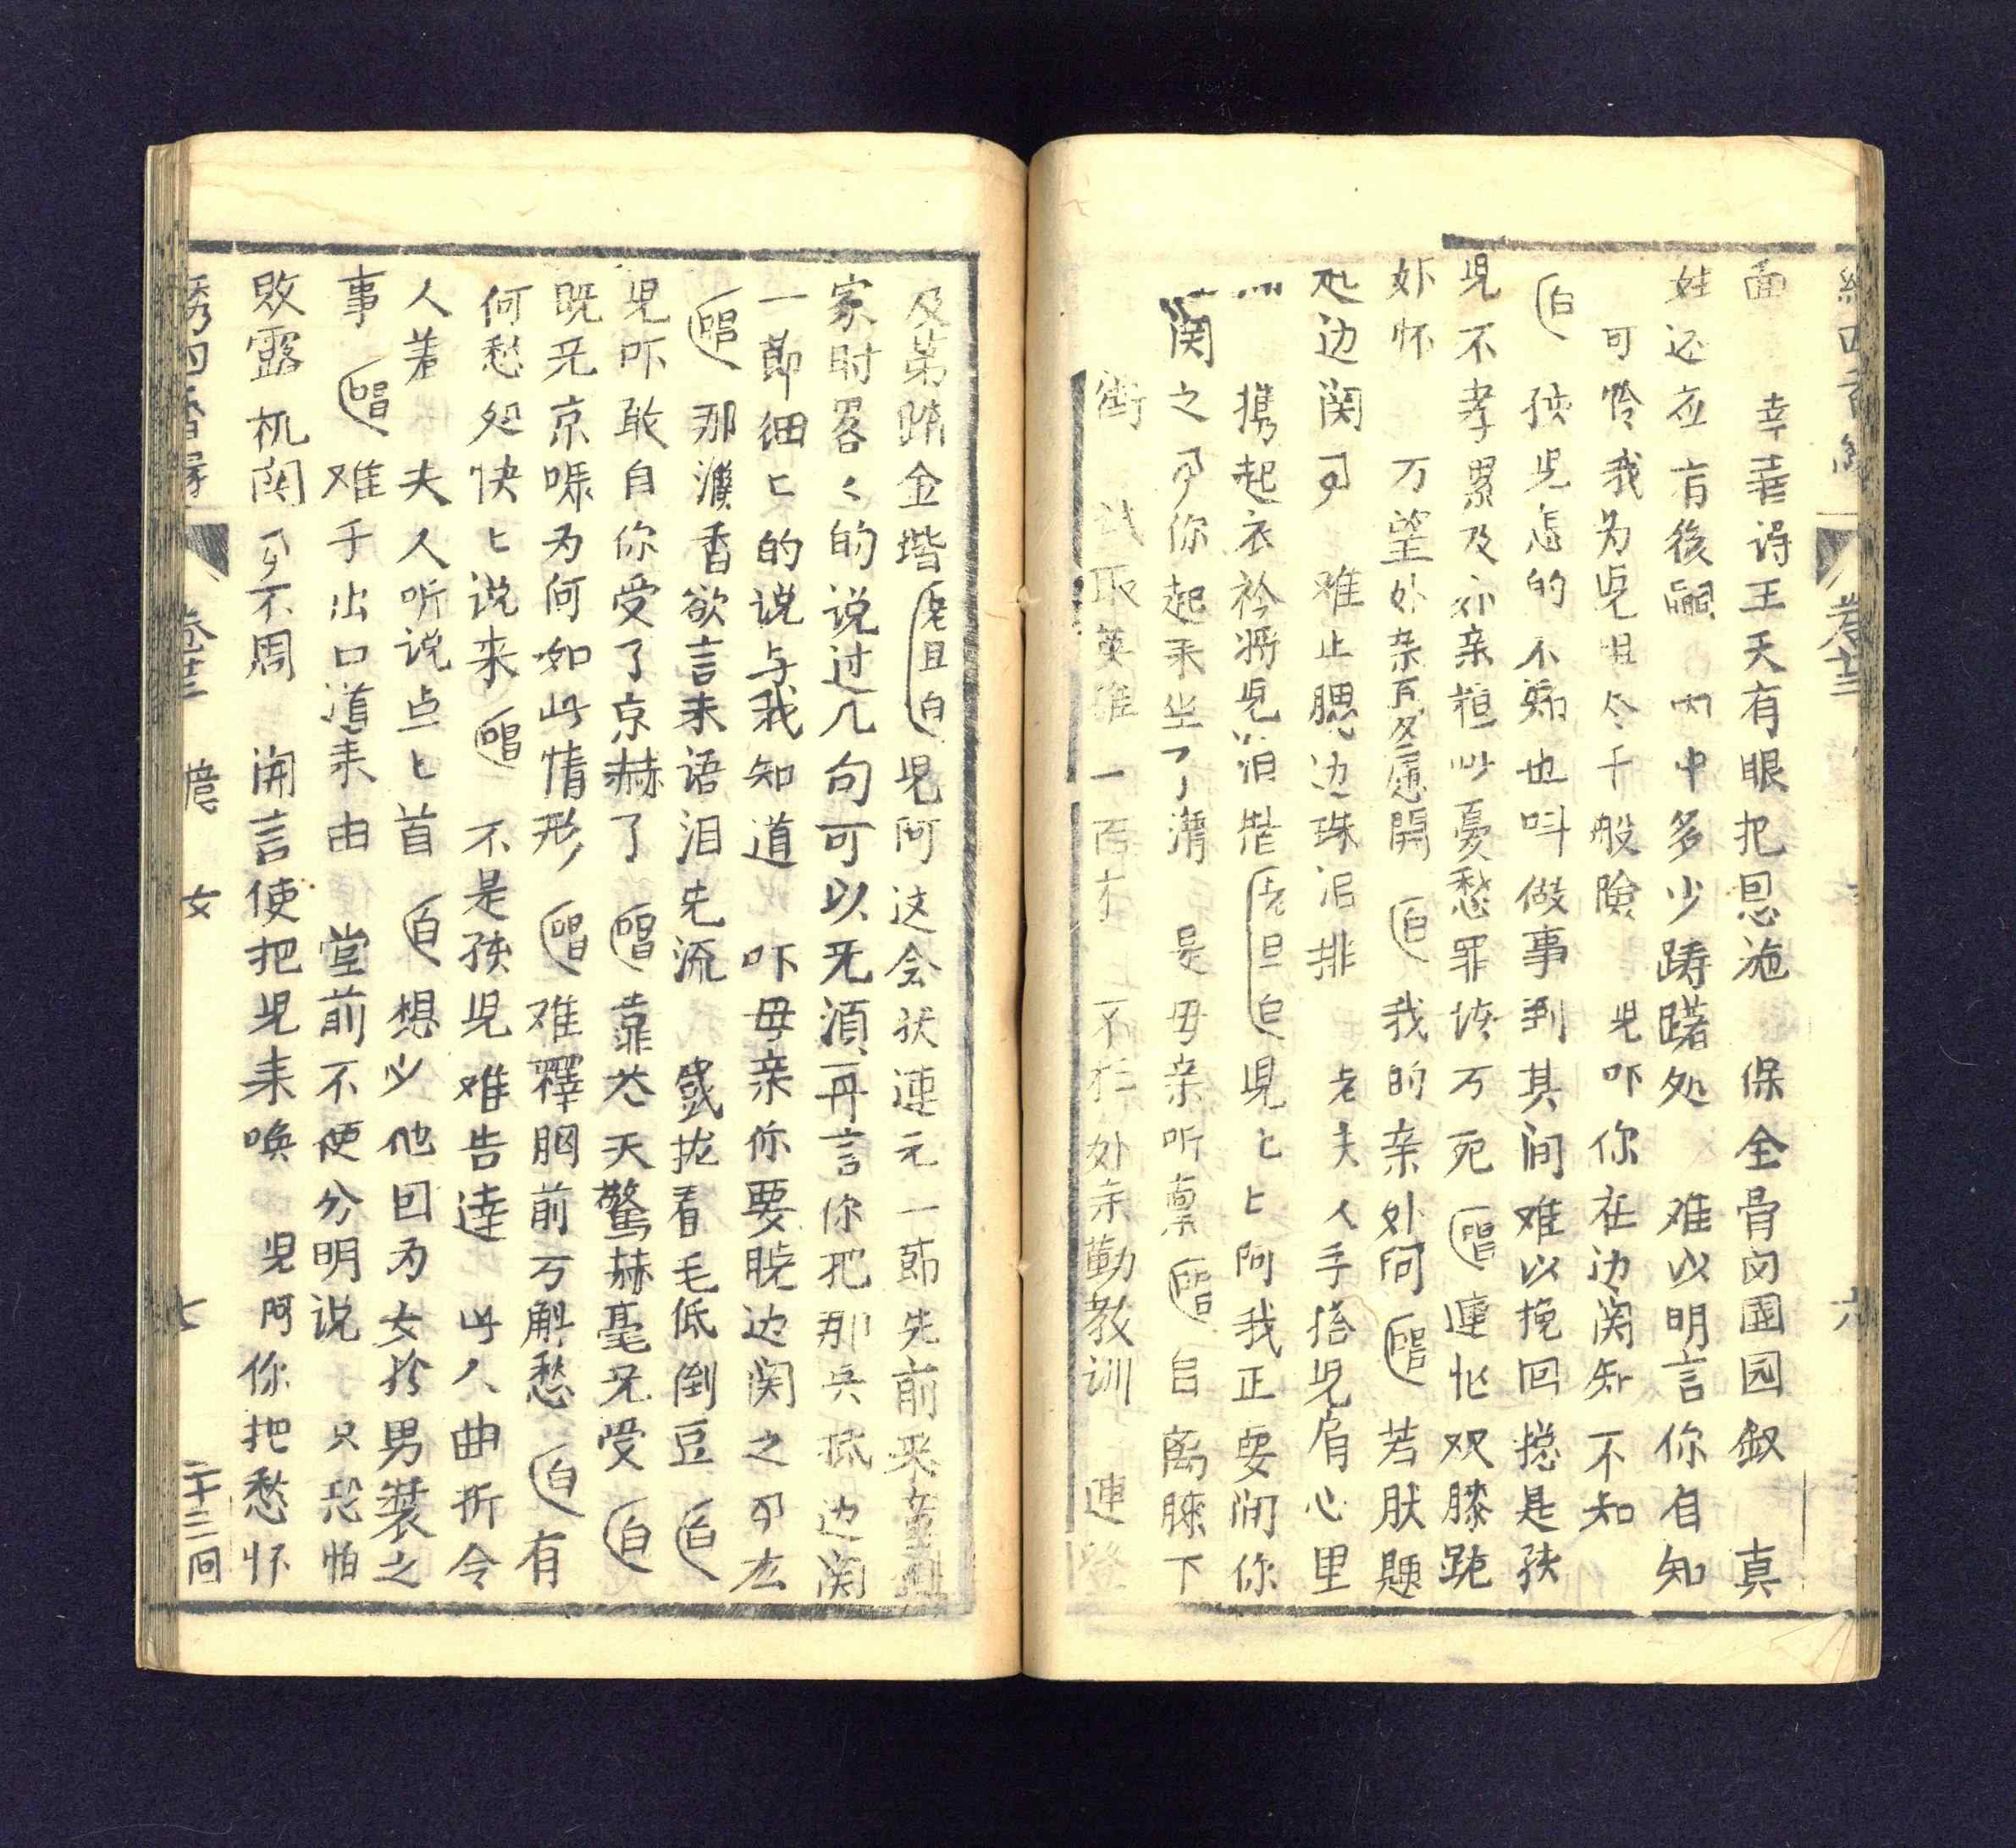 卷廿三
六
面 幸喜得王天有眼把恩施 保全骨肉團园叙 真
姓还在有後嗣 内中多少踌躇处 难以明言你自知
可怜我为児担今千般險 児吓你在边関知不知
白 孩児怎的不知也叫做事到其间难以挽回搃是孩
児不孝累及亦亲担此憂愁罪该万死 唱 連忙双膝跪
怀 万望外亲展愁開 白 我的亲外阿 唱 若朕題
起边関事 难止腮边珠泪排 老夫人手搭児肩心里
携起衣衿将児泪揩 老旦白 児匕匕阿我正要问你
関之事你起来坐了講 是母亲听禀 唱 自离膝下
試取英雄一百才 不拦外亲勤教训 連登
及第踏金堦 老旦白 児阿这会状連元一節先前来童到
家时畧く的说过几句可以无湏再言你把那兵抵边関
一節细匕的说与我知道 吓母亲你要脱边関之事広
唱 那濮香欲言未语泪先流 戯拢看毛低倒豆 白
児吓敢自你受了京赫了 唱 靠苍天驚赫毫无受 白
既无京嚇为何如此情形 唱 难釋胸前万斛愁 白 有
何愁処快匕说来 唱 不是孩児难告逹 此人曲折令
人羞 夫人听说点匕首 白 想必他回为女扮男裝之
事 唱 难于出口道来由 堂前不便分明说 只恐怕
败露机関事不周 開言使把児来唤 児阿你把愁怀
卷廿三 女 七 二十三囬